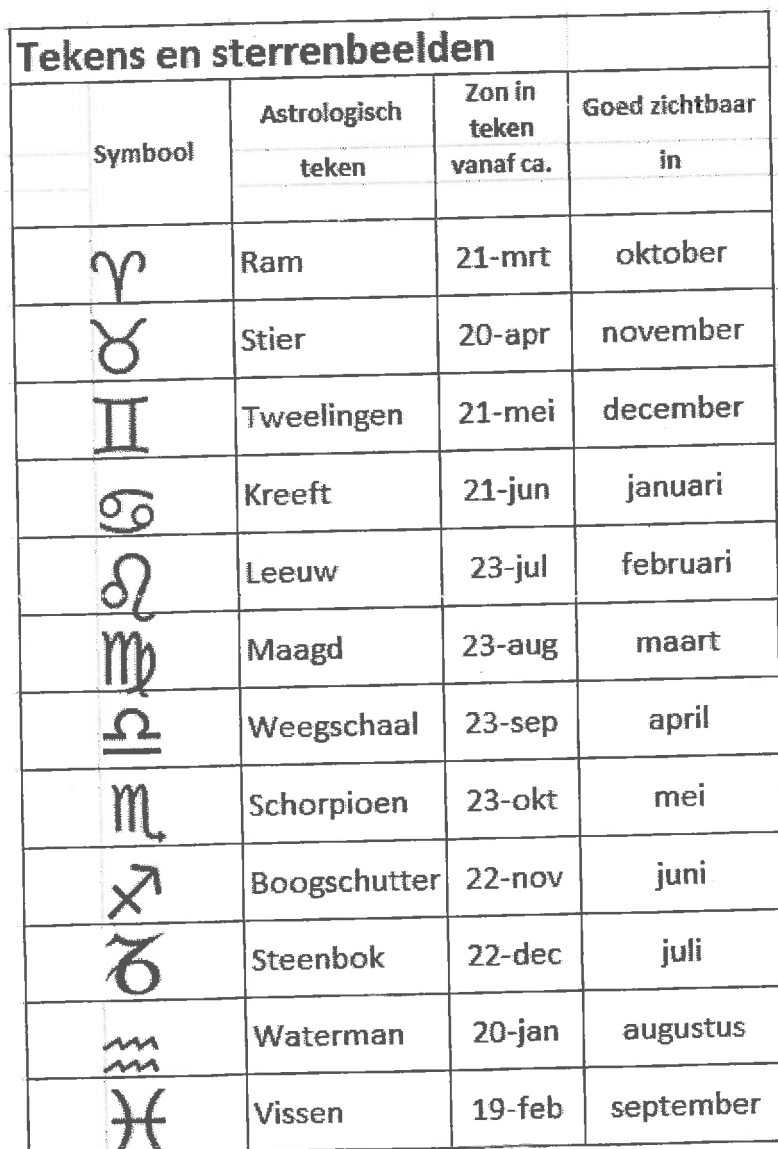 Tekens en sterrenbeelden
Symbool Astrologisch teken Zon in teken vanaf ca. Goed zichtbaar in
♈ Ram 21-mrt oktober
♉ Stier 20-apr november
♊ Tweelingen 21-mei december
♋ Kreeft 21-jun januari
♌ Leeuw 23-jul februari
♍ Maagd 23-aug maart
♎ Weegschaal 23-sep april
♏ Schorpioen 23-okt mei
♐ Boogschutter 22-nov juni
♑ Steenbok 22-dec juli
♒ Waterman 20-jan augustus
♓ Vissen 19-feb september